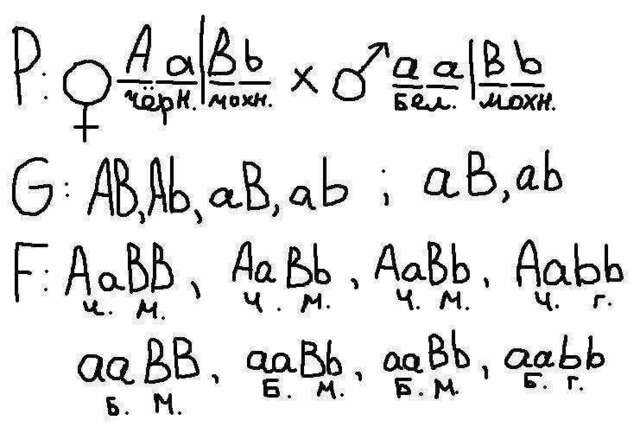 P: ♀ A a|B b × ♂ a a|B b
чёрн.|мохн. бел.|мохн.
G: AB, Ab, aB, ab ; aB, ab
F: AaBB, AaBb, AaBb, Aabb
ч. м. ч. м. ч. м. ч. г.
aaBB, aaBb, aaBb, aabb
Б. М. Б. М. Б. М. Б. г.